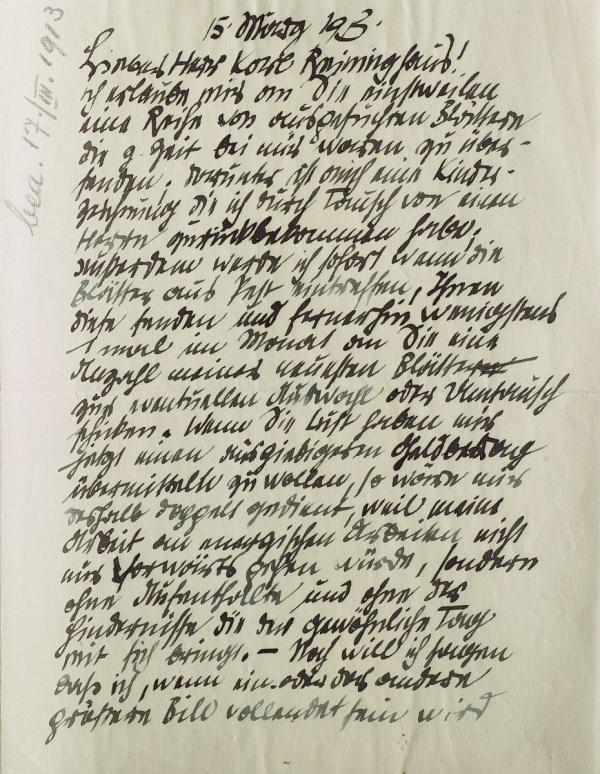 15. März 1913.
bea. 17/III. 1913
Lieber Herr Karl Reininghaus!
ich erlaube mir an Sie einstweilen
eine Reihe von ausgesuchten Blättern
die z. Zeit bei mir waren zu über-
senden. darunter ist auch eine Kinder-
zeichnung die ich durch Tausch von einem
Herrn zurückbekommen habe;
außerdem werde ich sofort wenn die
Blätter aus Pest eintreffen, Ihnen
diese senden und fernerhin wenigstens
1 mal im Monat an Sie eine
Anzahl meiner neuesten Blätter
zur eventuellen Auswahl oder Umtausch
schicken. Wenn Sie Lust haben mir
jetzt einen ausgiebigeren Geldbetrag
übermitteln zu wollen, so wäre mir
deshalb doppelt gedient, weil meine
Arbeit an energischen Arbeiten nicht
nur Vorwärts gehen würde, sondern
ohne Aufenthalte und ohne der
Hindernisse die der gewöhnliche Tag
mit sich bringt. – Noch will ich sagen
daß ich, wenn ein oder das andere
größere Bild vollendet sein wird